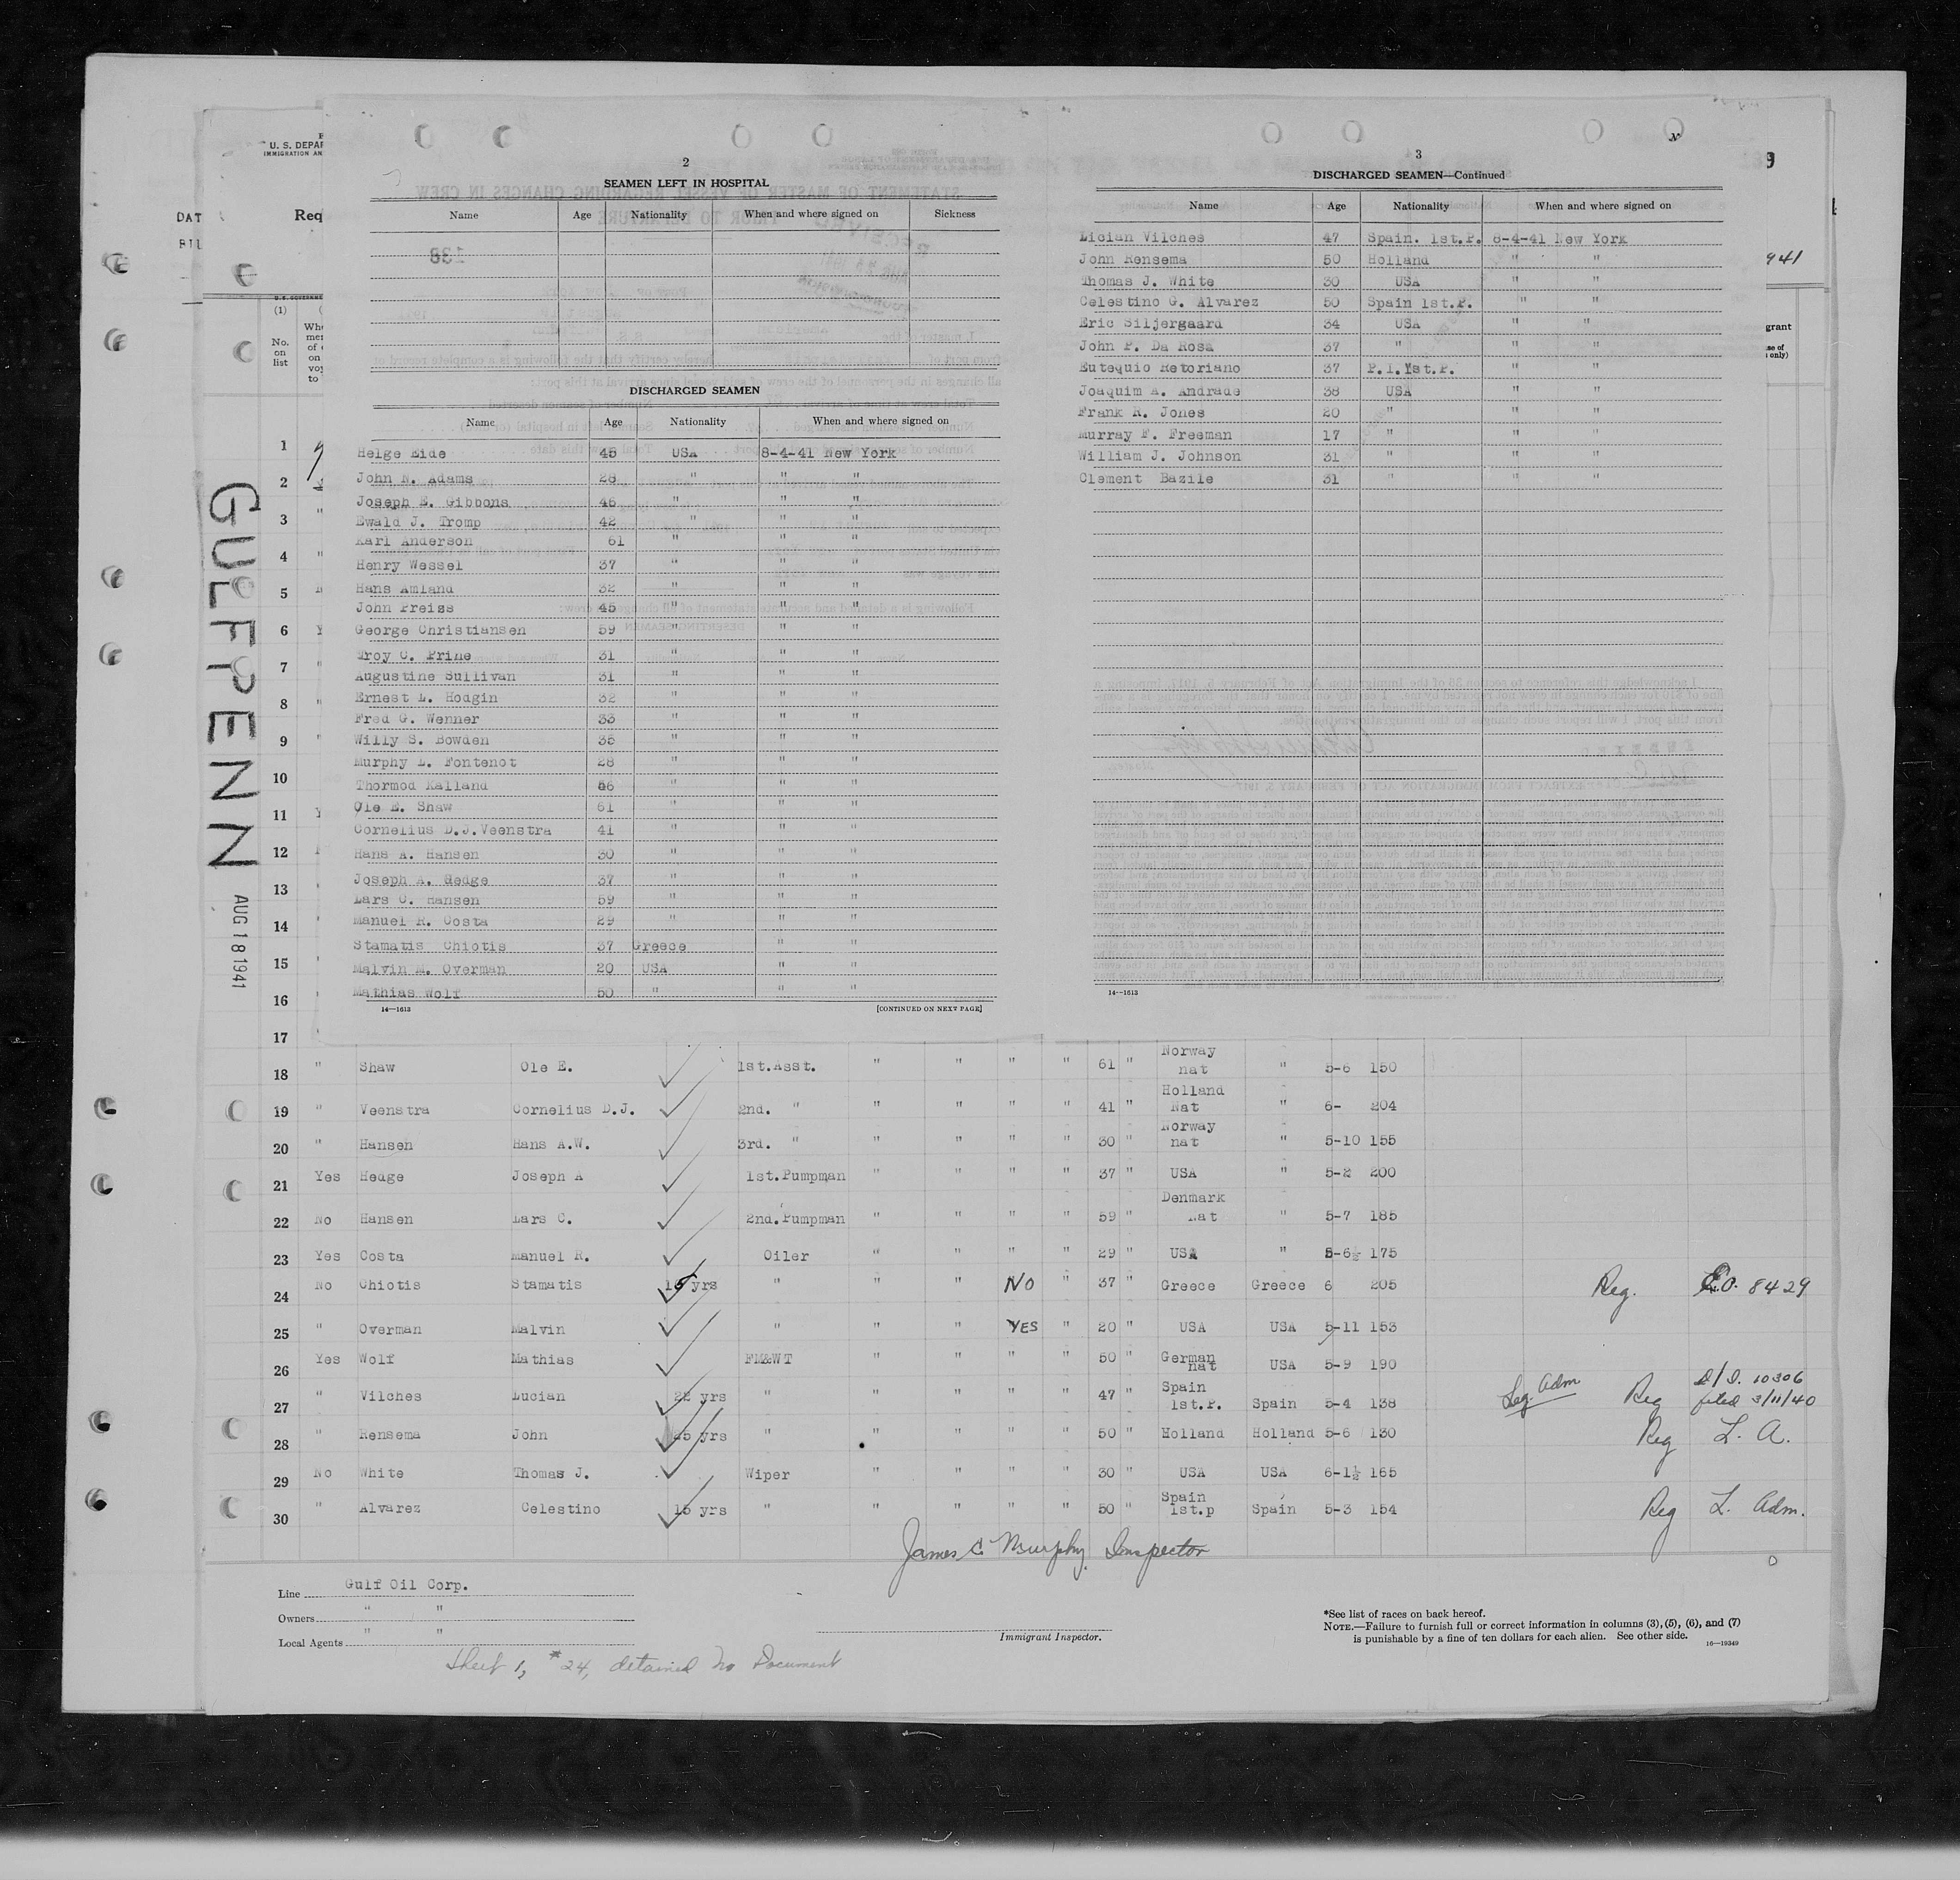 U. S. DEPAR
IMMIGRATION AN
DAT
Req
941
9
GULFPENN
AUG 18 1941
2
SEAMEN LEFT IN HOSPITAL
Name Age Nationality When and where signed on Sickness
DISCHARGED SEAMEN
Name Age Nationality When and where signed on
Helge Eide 45 USA 8-4-41 New York
John N. Adams 28 " " "
Joseph E. Gibbons 46 " " "
Ewald J. Tromp 42 " " "
Karl Anderson 61 " " "
Henry Wessel 37 " " "
Hans Amland 32 " " "
John Preiss 45 " " "
George Christiansen 59 " " "
Troy C. Prine 31 " " "
Augustine Sullivan 31 " " "
Ernest L. Hodgin 32 " " "
Fred G. Wenner 33 " " "
Willy S. Bowden 35 " " "
Murphy L. Fontenot 28 " " "
Thormod Kalland 46 " " "
Ole E. Shaw 61 " " "
Cornelius D.J.Veenstra 41 " " "
Hans A. Hansen 30 " " "
Joseph A. Hedge 37 " " "
Lars C. Hansen 59 " " "
Manuel R. Costa 29 " " "
Stamatis Chiotis 37 Greece " "
Malvin M. Overman 20 USA " "
Mathias Wolf 50 " " "
14—1613 [CONTINUED ON NEXT PAGE]
3
DISCHARGED SEAMEN—Continued
Name Age Nationality When and where signed on
Lician Vilches 47 Spain. 1st.P. 8-4-41 New York
John Rensema 50 Holland " "
Thomas J. White 30 USA " "
Celestino G. Alvarez 50 Spain 1st.P. " "
Eric Siljergaard 34 USA " "
John P. Da Rosa 37 " " "
Eutequio Retoriano 37 P.I.1st.P. " "
Joaquim A. Andrade 38 USA " "
Frank R. Jones 20 " " "
Murray F. Freeman 17 " " "
William J. Johnson 31 " " "
Clement Bazile 31 " " "
14—1613
(1)
No. on list
1
2
3
4
5
6
7
8
9
10
11
12
13
14
15
16
17
18 " Shaw Ole E. 1st.Asst. " " " " 61 " Norway nat " 5-6 150
19 " Veenstra Cornelius D.J. 2nd. " " " " " 41 " Holland Nat " 6- 204
20 " Hansen Hans A.W. 3rd. " " " " " 30 " Norway nat " 5-10 155
21 Yes Hedge Joseph A 1st.Pumpman " " " " 37 " USA " 5-2 200
22 No Hansen Lars C. 2nd.Pumpman " " " " 59 " Denmark nat " 5-7 185
23 Yes Costa Manuel R. Oiler " " " " 29 " USA " 5-6½ 175
24 No Chiotis Stamatis yrs " " " NO " 37 " Greece Greece 6 205 Reg. 8429
25 " Overman Malvin " " " YES " 20 " USA USA 5-11 153
26 Yes Wolf Mathias FM&WT " " " " 50 " German nat USA 5-9 190
27 " Vilches Lucian 22 yrs " " " " " 47 " Spain 1st.P. Spain 5-4 138 Leg. Adm Reg 10306 filed 3/11/40
28 " Rensema John yrs " " " " " 50 " Holland Holland 5-6 130 Reg L. A.
29 No White Thomas J. Wiper " " " " 30 " USA USA 6-1½ 165
30 " Alvarez Celestino 15 yrs " " " " " 50 " Spain 1st.p Spain 5-3 154 Reg L. Adm.
James C Murphy Inspector
Line Gulf Oil Corp.
Owners " "
Local Agents " "
Immigrant Inspector.
*See list of races on back hereof.
NOTE.—Failure to furnish full or correct information in columns (3), (5), (6), and (7)
is punishable by a fine of ten dollars for each alien. See other side. 16—19349
Sheet 1, #24, detained no Document